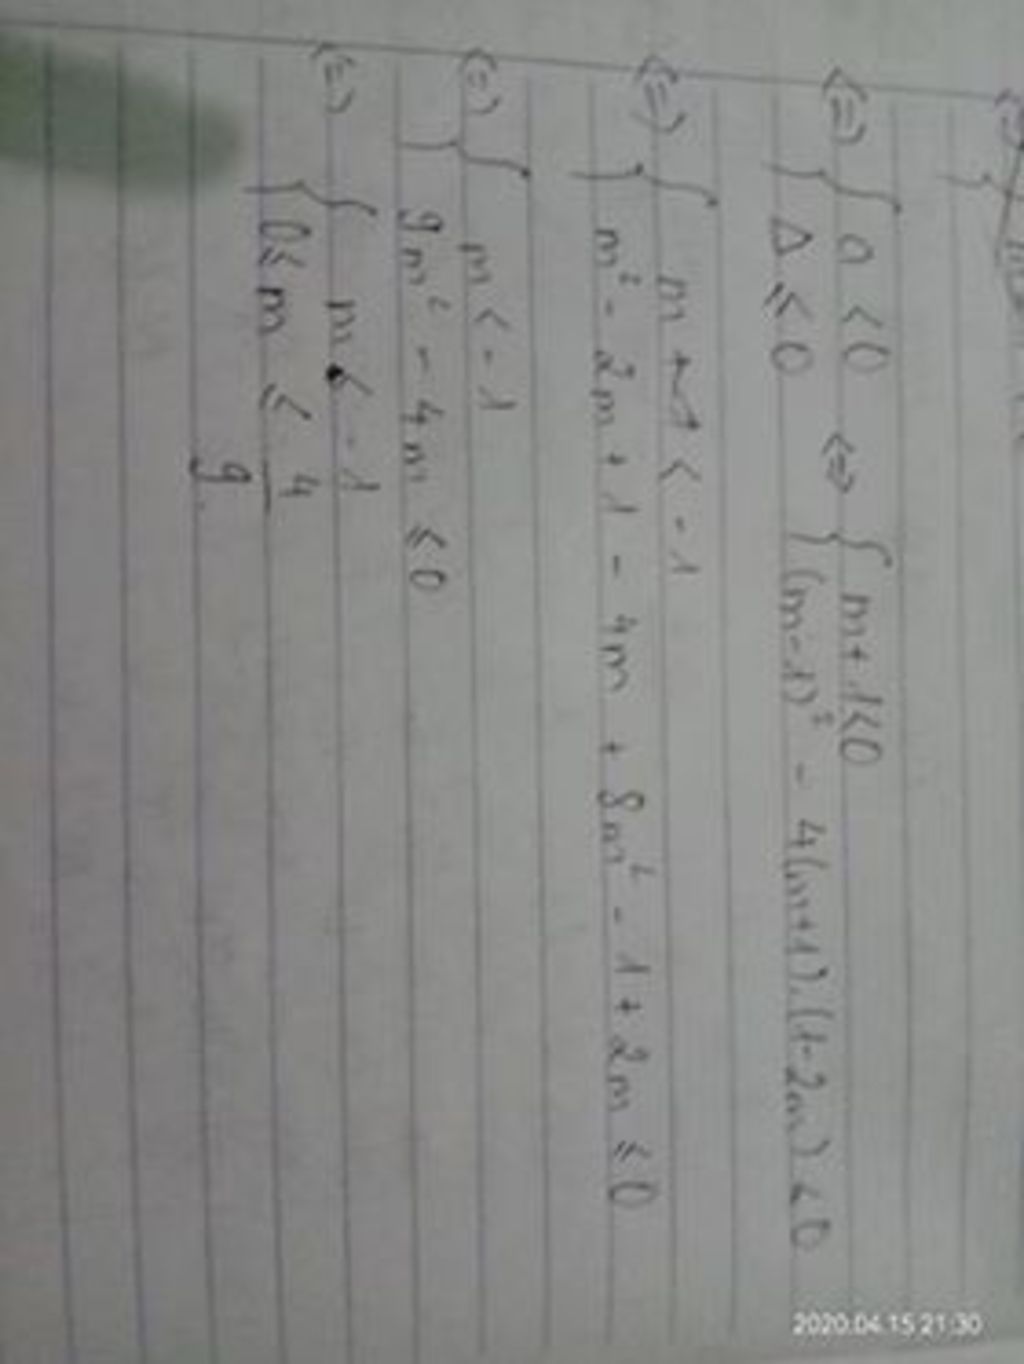 (=) { a < 0 <=> { m + 1 < 0
Δ ≤ 0 (m-1)² - 4(m+1).(1-2m) ≤ 0
(=) { m < -1
m² - 2m + 1 - 4m + 8m² - 1 + 2m ≤ 0
(=) { m < -1
9m² - 4m ≤ 0
(=) { m < -1
0 ≤ m ≤ 4/9
2020.04.15 21:30